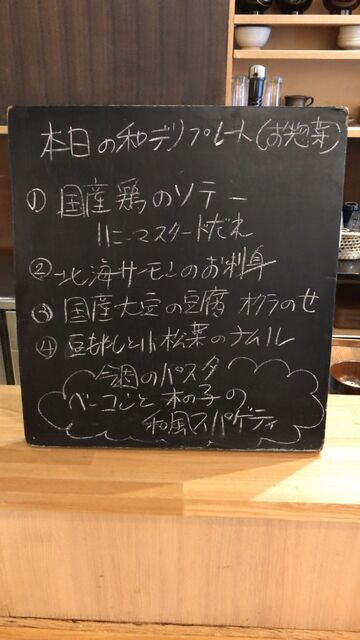 本日の和デリプレート(お惣菜)
① 国産鶏のソテー
ハニーマスタードだれ
② 北海サーモンのお刺身
③ 国産大豆の豆腐 オクラのせ
④ 豆もやしと小松菜のナムル
今週のパスタ
ベーコンと木の子の
和風スパゲティ